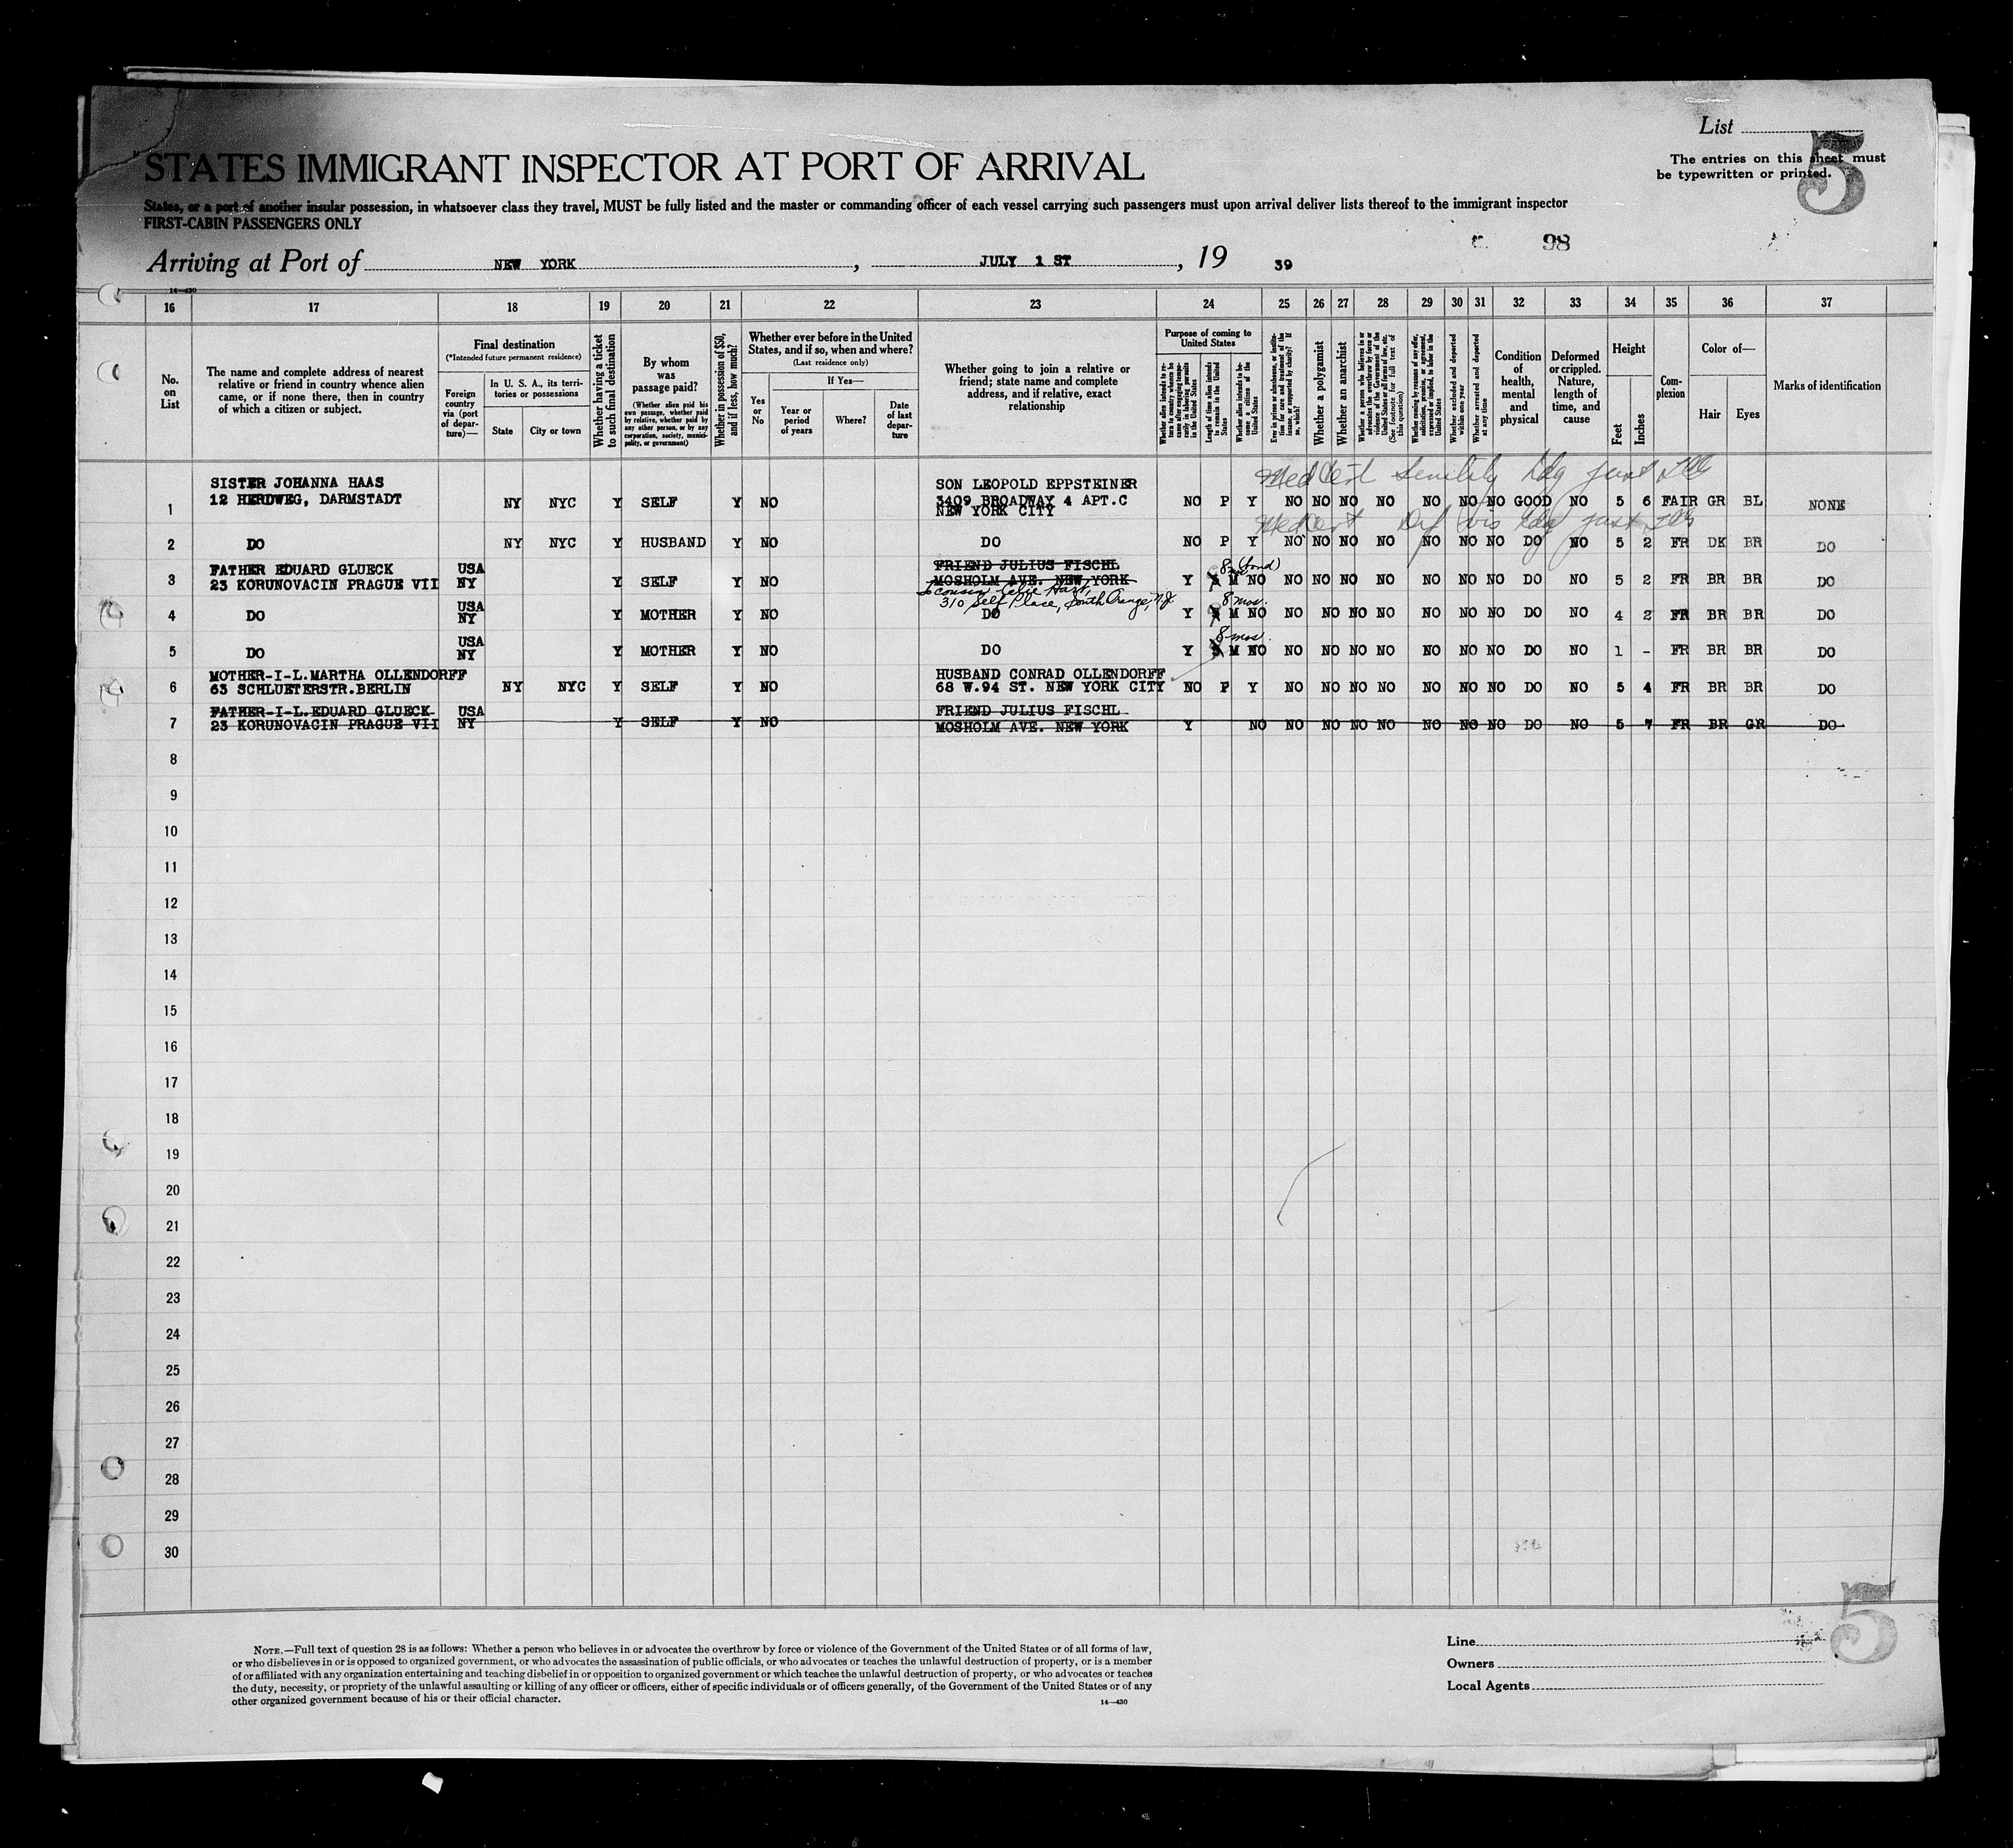 List
5
The entries on this sheet must
be typewritten or printed.
STATES IMMIGRANT INSPECTOR AT PORT OF ARRIVAL
States, or a port of another insular possession, in whatsoever class they travel, MUST be fully listed and the master or commanding officer of each vessel carrying such passengers must upon arrival deliver lists thereof to the immigrant inspector
FIRST-CABIN PASSENGERS ONLY
98
Arriving at Port of NEW YORK, JULY 1 ST, 19 39
14—430
16 17 18 19 20 21 22 23 24 25 26 27 28 29 30 31 32 33 34 35 36 37
No. on List
The name and complete address of nearest relative or friend in country whence alien came, or if none there, then in country of which a citizen or subject.
Final destination
(*Intended future permanent residence)
Foreign country via (port of departure)—
In U. S. A., its territories or possessions
State
City or town
Whether having a ticket to such final destination
By whom was passage paid?
(Whether alien paid his own passage, whether paid by relative, whether paid by any other person, or by any corporation, society, municipality, or government)
Whether in possession of $50, and if less, how much?
Whether ever before in the United States, and if so, when and where?
(Last residence only)
Yes or No
If Yes—
Year or period of years
Where?
Date of last departure
Whether going to join a relative or friend; state name and complete address, and if relative, exact relationship
Purpose of coming to United States
Whether alien intends to return to country whence he came after engaging temporarily in laboring pursuits in the United States
Length of time alien intends to remain in the United States
Whether alien intends to become a citizen of the United States
Ever in prison or almshouse, or institution for care and treatment of the insane, or supported by charity? If so, which?
Whether a polygamist
Whether an anarchist
Whether a person who believes in or advocates the overthrow by force or violence of the Government of the United States or all forms of law, etc. (See footnote for full text of this question)
Whether coming by reason of any offer, solicitation, promise, or agreement, expressed or implied, to labor in the United States
Whether excluded and deported within one year
Whether arrested and deported at any time
Condition of health, mental and physical
Deformed or crippled. Nature, length of time, and cause
Height
Feet
Inches
Complexion
Color of—
Hair
Eyes
Marks of identification
Med Cert Senility
SISTER JOHANNA HAAS SON LEOPOLD EPPSTEINER
1 12 HERDWEG, DARMSTADT NY NYC Y SELF Y NO 3409 BROADWAY 4 APT.C NO P Y NO NO NO NO NO NO NO GOOD NO 5 6 FAIR GR BL NONE
NEW YORK CITY
Med Cert Def vis
2 DO NY NYC Y HUSBAND Y NO DO NO P Y NO NO NO NO NO NO NO DO NO 5 2 FR DK BR DO
FATHER EDUARD GLUECK USA FRIEND JULIUS FISCHL 8 mos (bond)
3 23 KORUNOVACIN PRAGUE VII NY Y SELF Y NO MOSHOLM AVE. NEW YORK Y M NO NO NO NO NO NO NO NO DO NO 5 2 FR BR BR DO
to cousin Hart,
310 Self Place, South Orange, N.J. 8 mos.
4 DO USA NY Y MOTHER Y NO DO Y M NO NO NO NO NO NO NO NO DO NO 4 2 FR BR BR DO
8 mos.
5 DO USA NY Y MOTHER Y NO DO Y M NO NO NO NO NO NO NO NO DO NO 1 - FR BR BR DO
MOTHER-I-L.MARTHA OLLENDORFF HUSBAND CONRAD OLLENDORFF
6 63 SCHLUETERSTR.BERLIN NY NYC Y SELF Y NO 68 W.94 ST. NEW YORK CITY NO P Y NO NO NO NO NO NO NO DO NO 5 4 FR BR BR DO
FATHER-I-L.EDUARD GLUECK USA FRIEND JULIUS FISCHL
7 23 KORUNOVACIN PRAGUE VII NY Y SELF Y NO MOSHOLM AVE. NEW YORK Y NO NO NO NO NO NO NO NO DO NO 5 7 FR BR GR DO
8
9
10
11
12
13
14
15
16
17
18
19
20
21
22
23
24
25
26
27
28
29
30
5
NOTE.—Full text of question 28 is as follows: Whether a person who believes in or advocates the overthrow by force or violence of the Government of the United States or of all forms of law,
or who disbelieves in or is opposed to organized government, or who advocates the assassination of public officials, or who advocates or teaches the unlawful destruction of property, or is a member
of or affiliated with any organization entertaining and teaching disbelief in or opposition to organized government or which teaches the unlawful destruction of property, or who advocates or teaches
the duty, necessity, or propriety of the unlawful assaulting or killing of any officer or officers, either of specific individuals or of officers generally, of the Government of the United States or of any
other organized government because of his or their official character.
14—430
Line
Owners
Local Agents